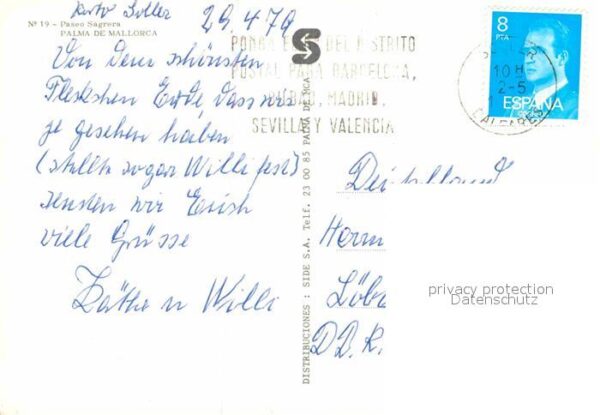 Porto Soller 29.4.79
Nº 19 - Paseo Sagrera
PALMA DE MALLORCA
Von dem schönsten
Fleckchen Erde, dass wir
je gesehen haben
(stellte sogar Willi fest)
senden wir Euch
viele Grüsse
Käthe u Willi
DISTRIBUCIONES : SIDE S.A. Telf. 23 00 85 PALMA DE
S
DEL DISTRITO
POSTAL PARA BARCELONA,
BILBAO, MADRID,
SEVILLA Y VALENCIA
8
PTA
ESPAÑA
10 H
2-5
BALEARES
Deutschland
Herrn
Löb
D.D.R.
privacy protection
Datenschutz